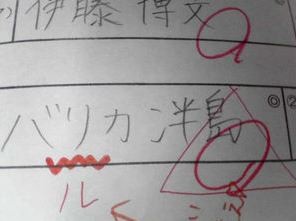 伊藤博文
バリカン半島
ル